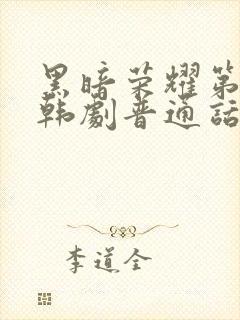 黑暗荣耀第
韩劇普通话
李道全